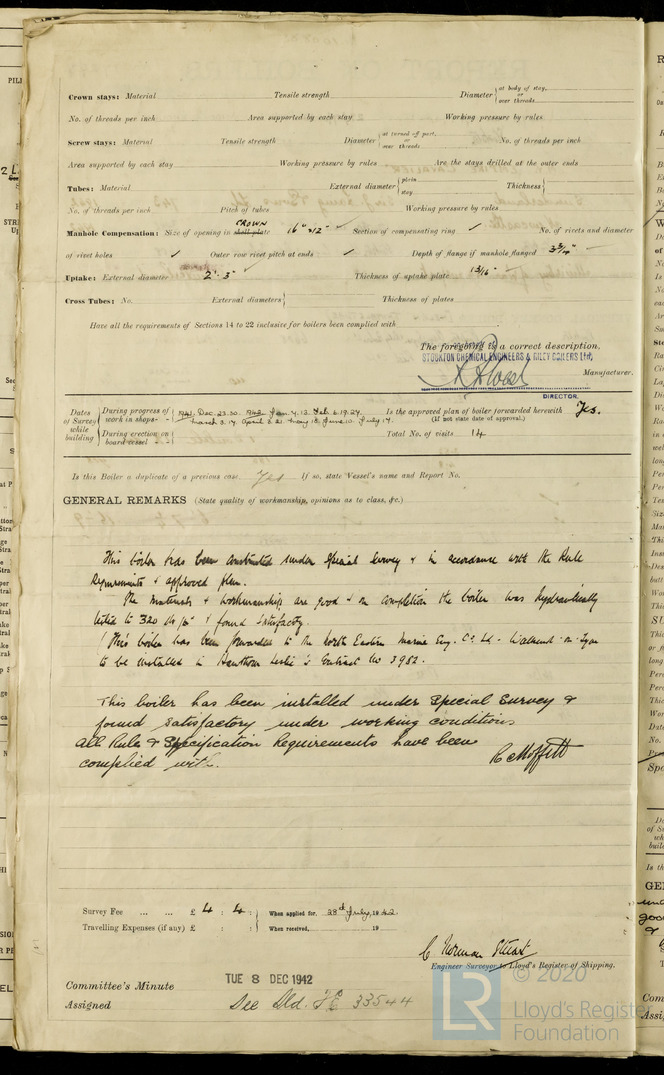 Crown stays: Material Tensile strength Diameter at body of stay, or over threads
No. of threads per inch Area supported by each stay Working pressure by rules
Screw stays: Material Tensile strength Diameter at turned off part, or over threads No. of threads per inch
Area supported by each stay Working pressure by rules Are the stays drilled at the outer ends
Tubes: Material External diameter plain stay Thickness
No. of threads per inch Pitch of tubes Working pressure by rules
CROWN
Manhole Compensation: Size of opening in shell plate 16" x 12" Section of compensating ring ✓ No. of rivets and diameter
of rivet holes ✓ Outer row rivet pitch at ends ✓ Depth of flange if manhole flanged
Uptake: External diameter 2'-3" Thickness of uptake plate 13/16"
Cross Tubes: No. External diameters Thickness of plates
Have all the requirements of Sections 14 to 22 inclusive for boilers been complied with
The foregoing is a correct description,
STOCKTON CHEMICAL ENGINEERS & RILEY BOILERS Ltd.
Manufacturer.
DIRECTOR.
Dates of Survey while building
During progress of work in shops - - 1941. Dec. 23.30. 1942 Jan. 7.13. Feb. 6.19.27. March 3.17. April 8.21. May 18. June 10. July 17.
Is the approved plan of boiler forwarded herewith Yes.
(If not state date of approval.)
During erection on board vessel - - -
Total No. of visits 14
Is this Boiler a duplicate of a previous case Yes If so, state Vessel's name and Report No.
GENERAL REMARKS (State quality of workmanship, opinions as to class, &c.)
This boiler has been constructed under Special Survey & in accordance with the Rule
Requirements & approved plan.
The materials & workmanship are good & on completion the boiler was hydraulically
tested to 320 lbs/□" & found satisfactory.
This boiler has been forwarded to the North Eastern Marine Eng. Co. Ld. - Wallsend-on-Tyne
to be installed in Hawthorn Leslie's Contract No 3982.
This boiler has been installed under Special Survey &
found satisfactory under working conditions
All Rule & Specification Requirements have been
complied with.
R C Moffitt
Survey Fee ... ... £ 4 : 4 : When applied for, 28th July, 1942.
Travelling Expenses (if any) £ : : When received, 19
C Norman Stuart
Engineer Surveyor to Lloyd's Register of Shipping.
TUE 8 DEC 1942
Committee's Minute
Assigned See Dld. F.E. 33544
© 2020
LR
Lloyd's Register
Foundation